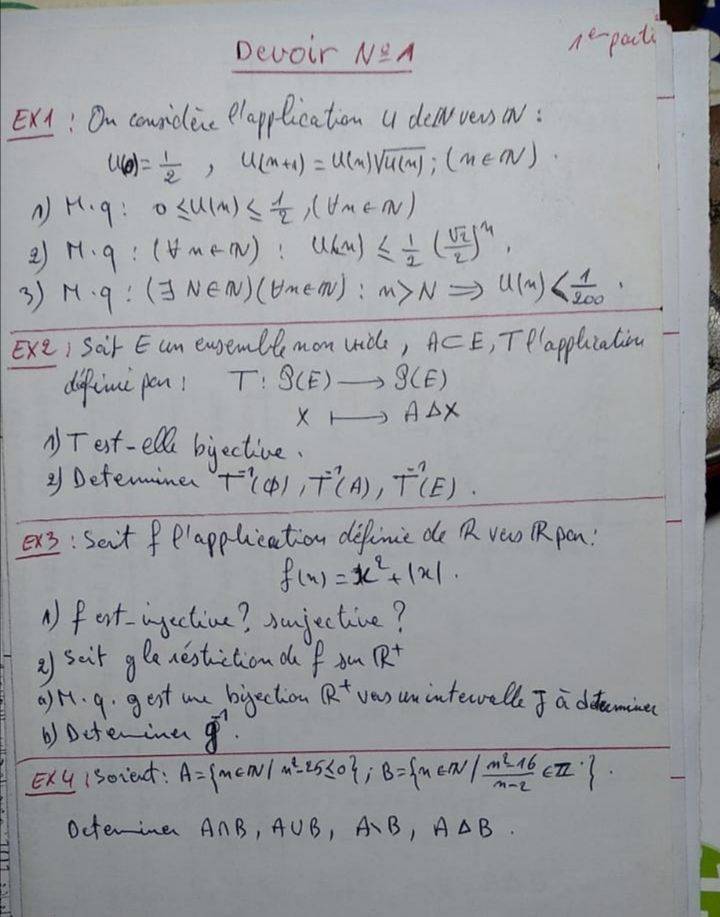 Devoir Nº1
1ère parti
EX1 : On considère l'application U de ℕ vers ℕ :
U(0) = 1/2 , U(n+1) = U(n)√U(n) ; (n ∈ ℕ).
1) M.q : 0 ≤ U(n) ≤ 1/2 , (∀n ∈ ℕ)
2) M.q : (∀n ∈ ℕ) : U(n) ≤ 1/2 (√2/2)^n .
3) M.q : (∃ N ∈ ℕ)(∀n ∈ ℕ) : n > N ⟹ U(n) < 1/200 .
EX2 : Soit E un ensemble non vide, A ⊂ E, T l'application
définie par : T : 𝒫(E) ⟶ 𝒫(E)
X ⟼ A Δ X
1) T est-elle bijective.
2) Determiner T⁻¹(ϕ), T⁻¹(A), T⁻¹(E).
EX3 : Soit f l'application définie de ℝ vers ℝ par :
f(x) = x² + |x| .
1) f est-injective? surjective?
2) Soit g la réstriction de f sur ℝ⁺
a) M.q. g est une bijection ℝ⁺ vers un intervalle J à determiner
b) Determiner g⁻¹.
EX4 : Soient : A = {n ∈ ℕ / n² - 25 ≤ 0} ; B = {n ∈ ℕ / (n² - 16)/(n - 2) ∈ ℤ} .
Determiner A∩B, A∪B, A\B, A Δ B .